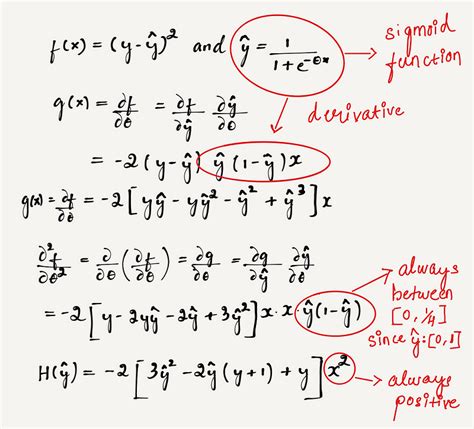 f(x) = (y-ŷ)² and ŷ = 1/(1+e^-θx) → sigmoid function
g(x) = ∂f/∂θ = ∂f/∂ŷ ∂ŷ/∂θ derivative
= -2(y-ŷ) ŷ(1-ŷ)x
g(x) = ∂f/∂θ = -2[yŷ - yŷ² - ŷ² + ŷ³]x
∂²f/∂θ² = ∂/∂θ(∂f/∂θ) = ∂g/∂θ = ∂g/∂ŷ ∂ŷ/∂θ
= -2[y - 2yŷ - 2ŷ + 3ŷ²]x·x·ŷ(1-ŷ) → always between [0, 1/4] since ŷ:[0,1]
H(ŷ) = -2[3ŷ² - 2ŷ(y+1) + y]x² → always positive